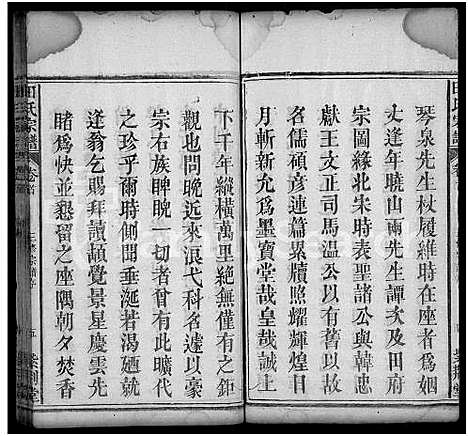 琴泉先生杖履維時在座者為姻
丈逢年曉山兩先生譚次及田府
宗圖緣北宋時表聖諸公
獻王文正司馬溫公以有舊以故
名儒碩彥連篇累牘照耀輝煌
月斬新允為墨寶堂哉皇哉誠上
下千年縱橫萬里絕無僅有之鉅
觀也問晚近來浪弋科名遽以豪
宗右族睥睨一切者曾有此曠代
之珍乎爾時側垂涎若渴廼就
逢翁乞賜拜讀頡覺景星慶雲先
睹為快並懇留之座隅朝夕焚香
田氏宗譜
卷首
五
紫荊堂